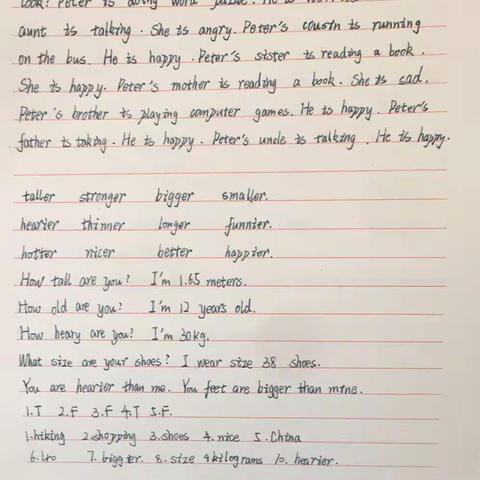 Look! Peter is doing word puzzle. He is
aunt is talking. She is angry. Peter's cousin is running
on the bus. He is happy. Peter's sister is reading a book.
She is happy. Peter's mother is reading a book. She is sad.
Peter's brother is playing computer games. He is happy. Peter's
father is taking. He is happy. Peter's uncle is talking. He is happy.
taller stronger bigger smaller.
hearier thinner longer funnier.
hotter nicer better happier.
How tall are you? I'm 1.65 meters.
How old are you? I'm 12 years old.
How heary are you? I'm 30kg.
What size are your shoes? I wear size 38 shoes.
You are hearier than me. You feet are bigger than mine.
1.T 2.F 3.F 4.T 5.F.
1.hiking 2.shopping 3.shoes 4.nice 5.China
6.40 7.bigger. 8.size 9.kilograms 10.hearier.